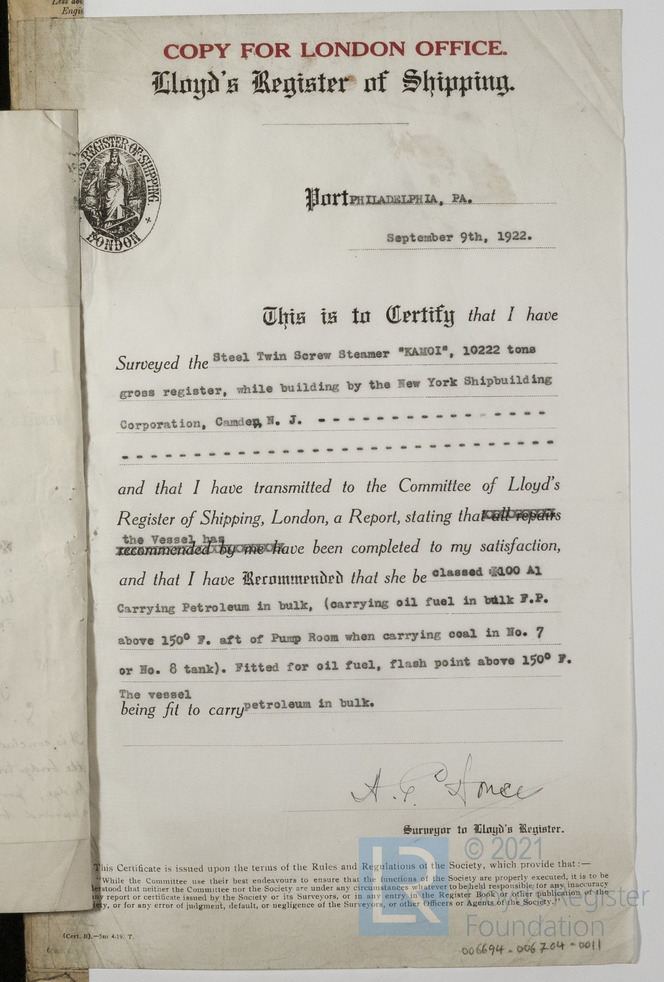 COPY FOR LONDON OFFICE.
Lloyd's Register of Shipping.
REGISTER OF SHIPPING
LONDON
Port PHILADELPHIA, PA.
September 9th, 1922.
This is to Certify that I have
Surveyed the Steel Twin Screw Steamer "KAMOI", 10222 tons
gross register, while building by the New York Shipbuilding
Corporation, Camden, N. J. - - - - - - - - - - - - - -
- - - - - - - - - - - - - - - - - - - - - - - - - - -
and that I have transmitted to the Committee of Lloyd's
Register of Shipping, London, a Report, stating that all repairs
the Vessel has
recommended by me have been completed to my satisfaction,
and that I have Recommended that she be classed 100 A1
Carrying Petroleum in bulk, (carrying oil fuel in bulk F.P.
above 150° F. aft of Pump Room when carrying coal in No. 7
or No. 8 tank). Fitted for oil fuel, flash point above 150° F.
The vessel
being fit to carry petroleum in bulk.
Surveyor to Lloyd's Register.
This Certificate is issued upon the terms of the Rules and Regulations of the Society, which provide that:—
"While the Committee use their best endeavours to ensure that the functions of the Society are properly executed, it is to be
erstood that neither the Committee nor the Society are under any circumstances whatever to be held responsible for any inaccuracy
ny report or certificate issued by the Society or its Surveyors, or in any entry in the Register Book or other publication of the
iety, or for any error of judgment, default, or negligence of the Surveyors, or other Officers or Agents of the Society."
© 2021
Lloyd's Register
Foundation
LR
006694-006704-0011